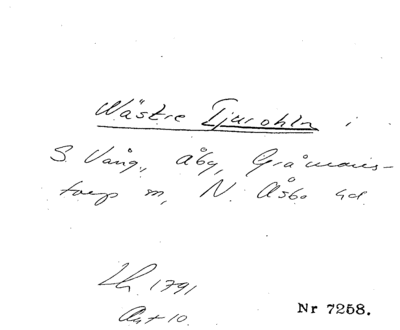 Wästre Tjurohln i
S Vång, Åby, Gråmans-
torp m, N. Åsbo hd
Lh. 1791
Akt 10.
Nr 7258.